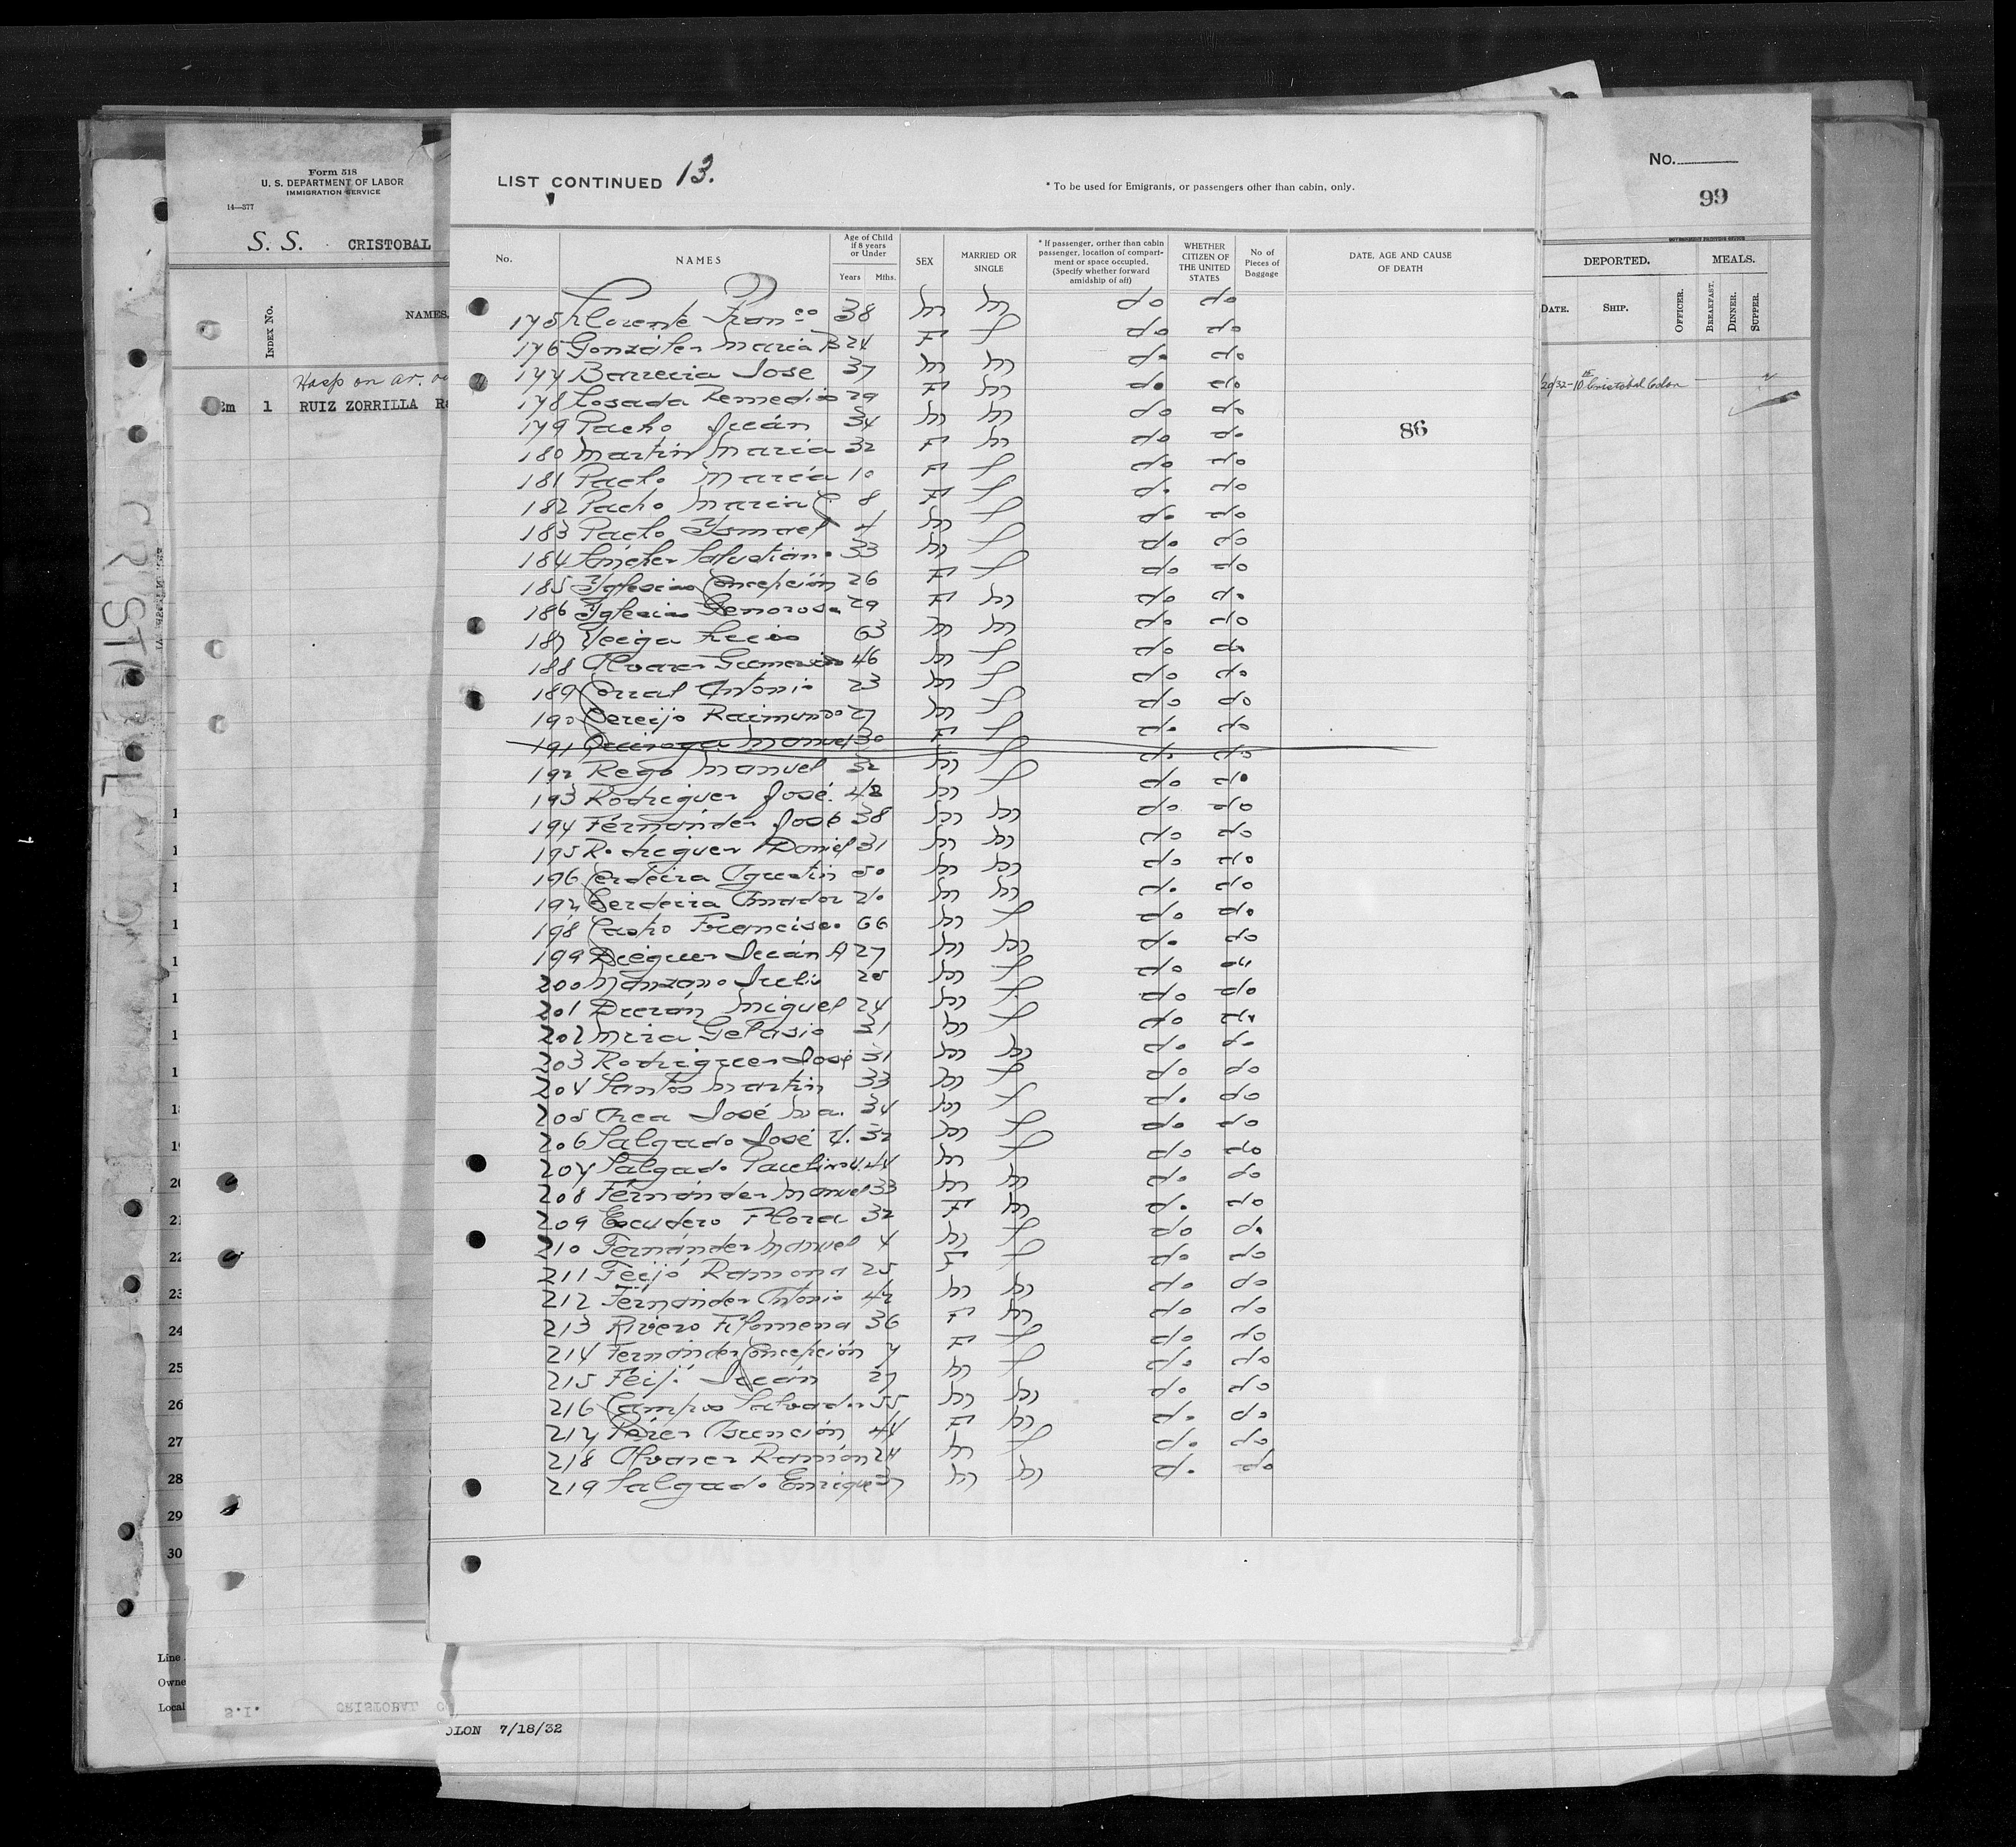 Form 518
U. S. DEPARTMENT OF LABOR
IMMIGRATION SERVICE
14—377
S. S. CRISTOBAL
INDEX No.
NAMES.
Hosp on ar.
1 RUIZ ZORRILLA
LIST CONTINUED 13.
* To be used for Emigrants, or passengers other than cabin, only.
No.
NAMES
Age of Child if 8 years or Under
Years Mths.
SEX
MARRIED OR SINGLE
* If passenger, orther than cabin passenger, location of compartment or space occupied. (Specify whether forward amidship of aft)
WHETHER CITIZEN OF THE UNITED STATES
No of Pieces of Baggage
DATE, AGE AND CAUSE OF DEATH
175 Llorente Franco 38 m m do do
176 González Maria B 24 F S do do
177 Barrecia Jose 37 m m do do
178 Losada Remedios 29 F m do do
179 Pacho Juán 34 m m do do
86
180 Martin Maria 32 F m do do
181 Pacho María 10 F S do do
182 Pacho Maria C 8 F S do do
183 Pacho Ysmael 4 m S do do
184 Sáncher Salustian. 33 m S do do
185 Yglesias Concepción 26 F S do do
186 Yglesias Generosa 29 F m do do
187 Veiga Lucio 63 m m do do
188 Alvarez 46 m S do do
189 Corral Antonio 23 m S do do
190 Cereijo Raimundo 27 m S do do
191 Quiroga Manuel 30 F S do do
192 Rego Manuel 32 m S do do
193 Rodriguez José. 48 m S do do
194 Férnández José 38 m m do do
195 Rodriguez Daniel 31 m m do do
196 Cerdeira Agustin 50 m m do do
197 Cerdeira Amador 20 m m do do
198 Castro Francisco 66 m S do do
199 Dieguez Juán A 27 m m do do
200 Manzano Julio 25 m S do do
201 Durán Miguel 24 m S do do
202 Mira Gelasio 31 m S do do
203 Rodriguez José 31 m m do do
204 Santos Martin 33 m S do do
205 Chea José Ma. 34 m S do do
206 Salgado José V. 32 m S do do
207 Salgado 44 m S do do
208 Férnández Manuel 33 m m do do
209 Escudero Flora 32 F m do do
210 Fernández Manuel 4 m S do do
211 Feijó Ramona 25 F S do do
212 Férnández Antonio 42 m m do do
213 Rivero Filomena 36 F m do do
214 Fernández Concepción 7 F S do do
215 Féijó Juán 27 m S do do
216 Campos Salvador 55 m m do do
217 Pérez Asunción 44 F m do do
218 Alvarez Ramón 24 m S do do
219 Salgado Enrique 37 m m do do
No.
99
DEPORTED. MEALS.
DATE. SHIP. OFFICER. BREAKFAST. DINNER. SUPPER.
Cristóbal Colon
CRISTOBAL
19
20
21
22
23
24
25
26
27
28
29
30
Line
Owne
Local
S.I.
OLON 7/18/32